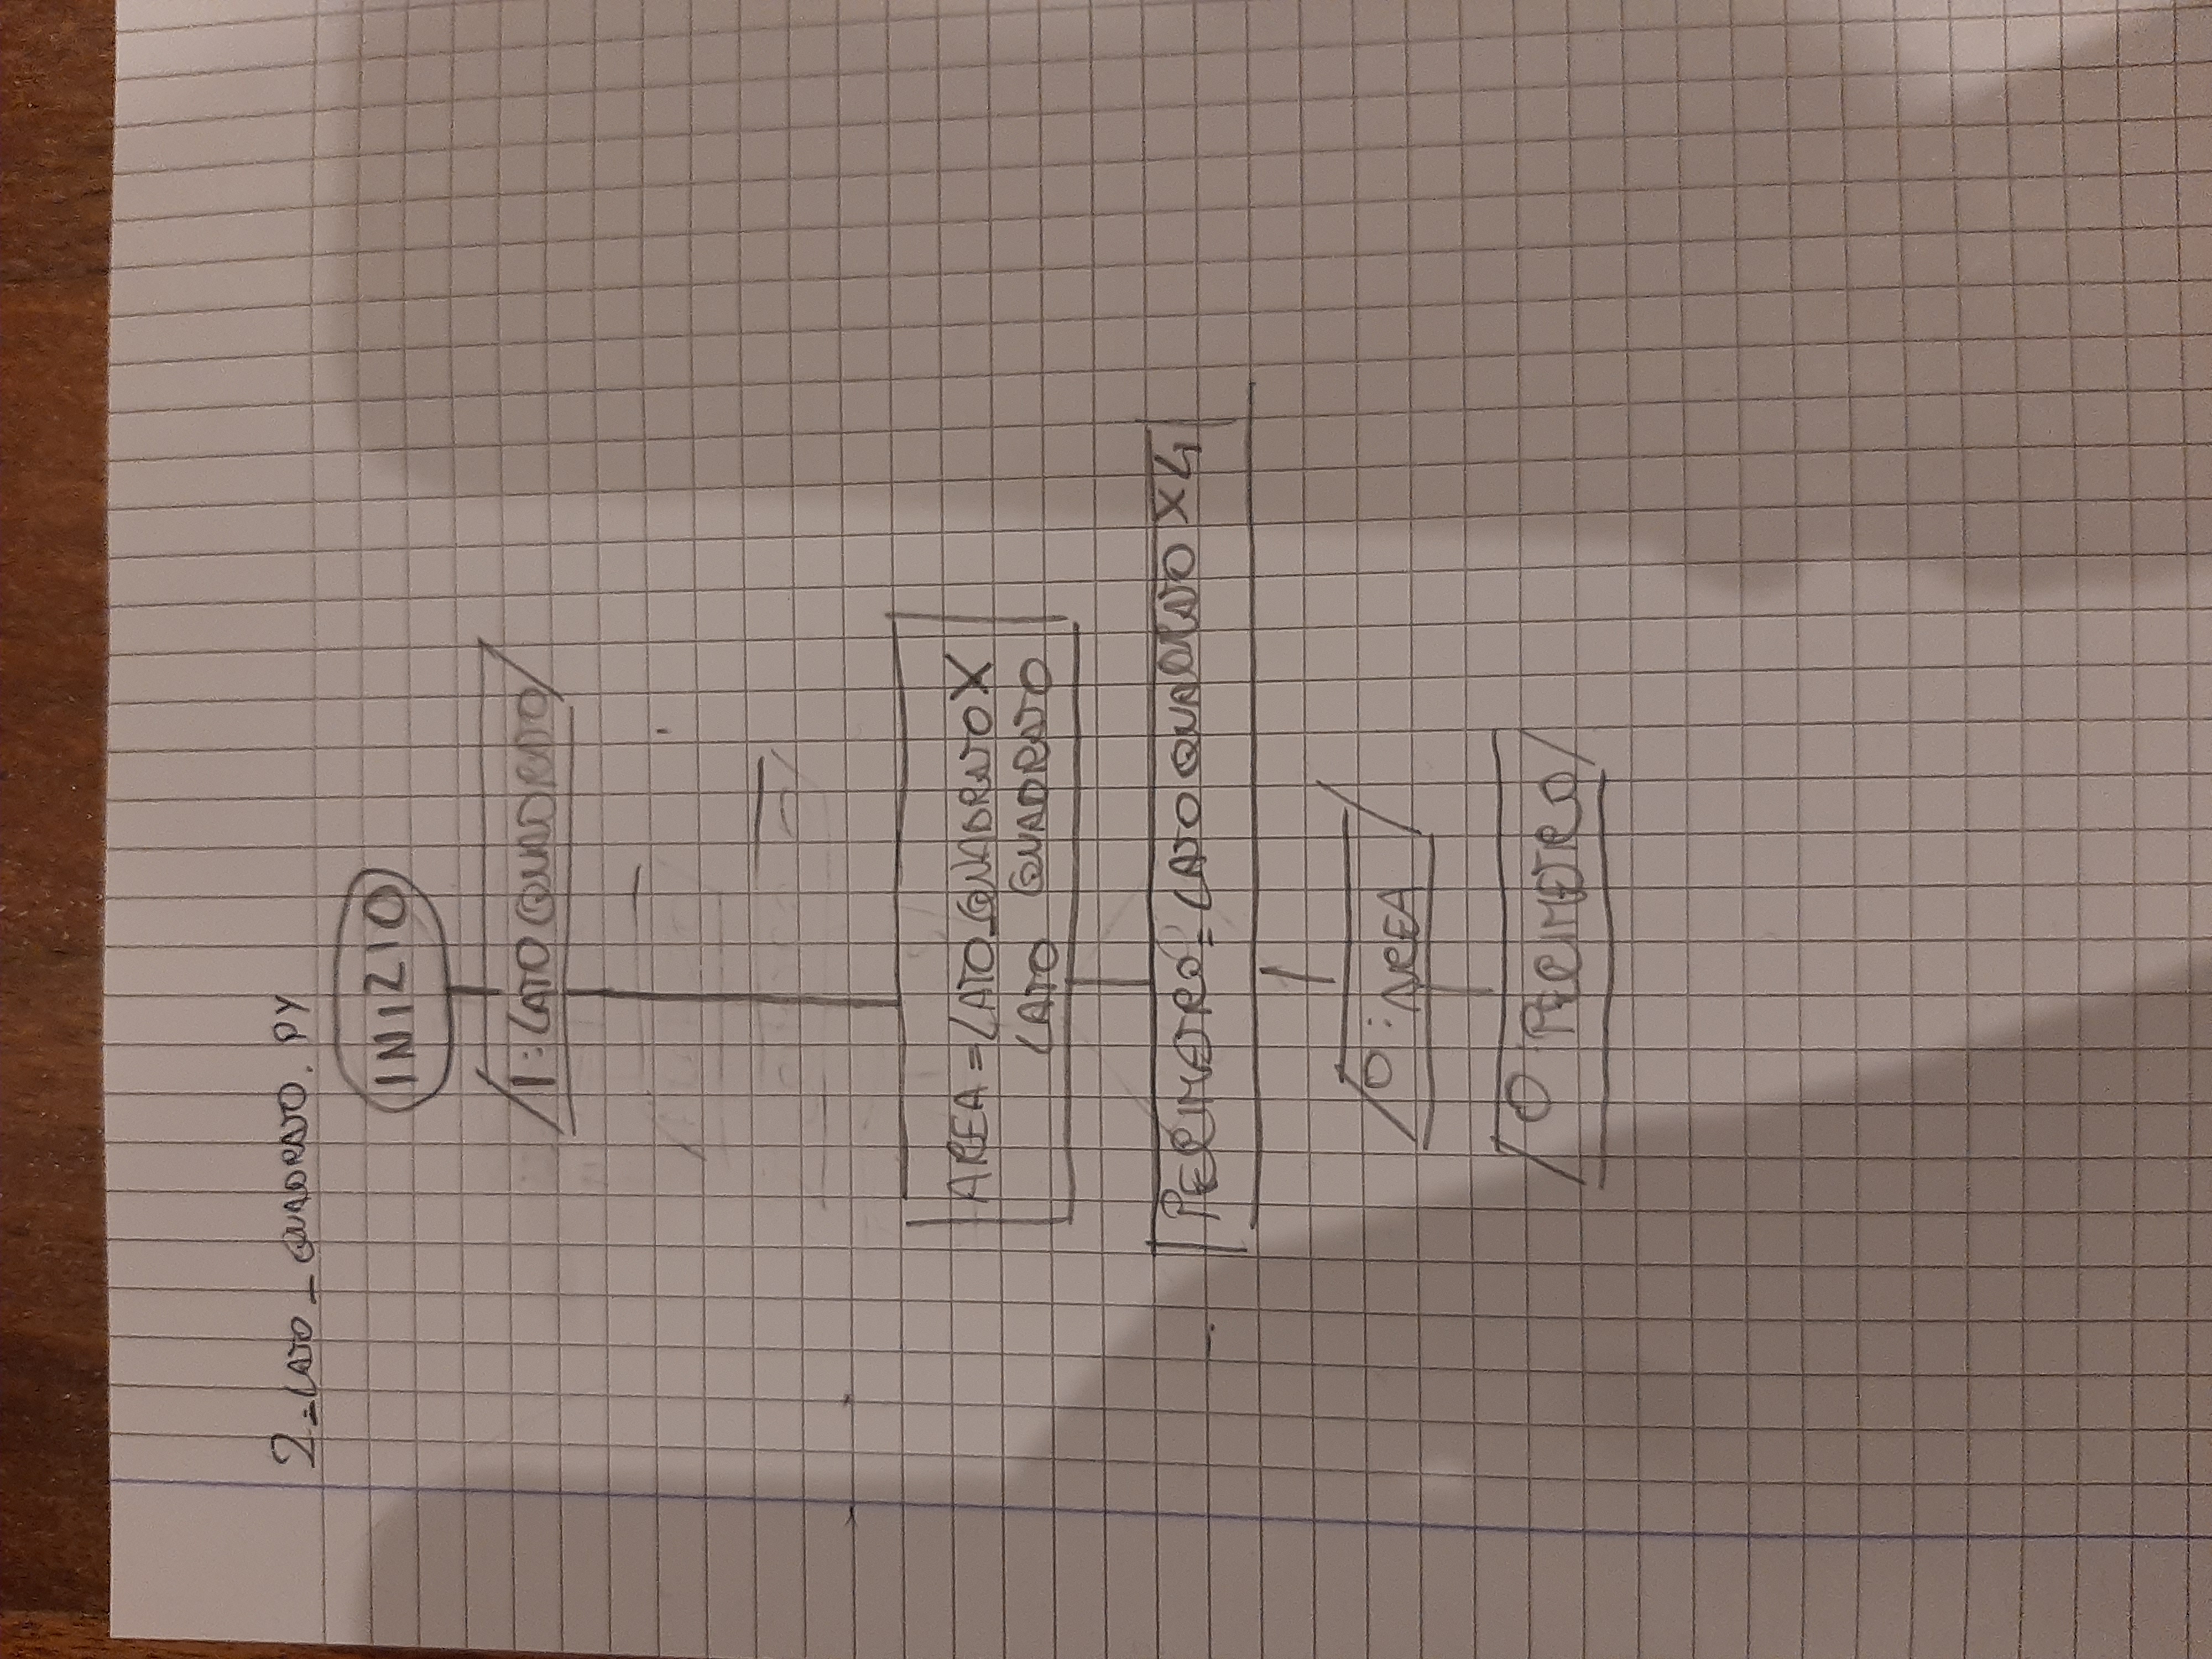 2_LATO_QUADRATO.PY
INIZIO
I: LATO QUADRATO
AREA = LATO_QUADRATO X
LATO QUADRATO
PERIMETRO = LATO QUADRATO X 4
O: AREA
O PERIMETRO